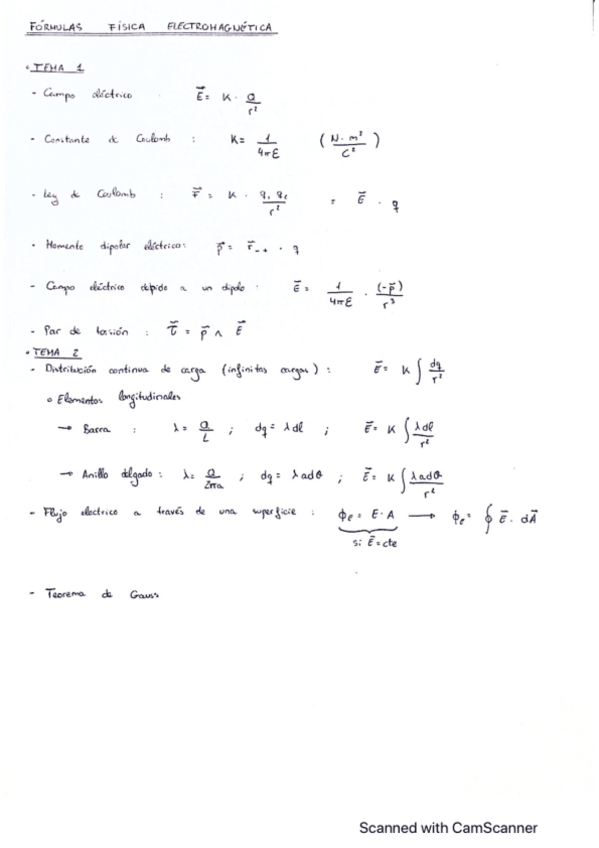 FÓRMULAS FÍSICA ELECTROMAGNÉTICA
• TEMA 1
- Campo eléctrico : E⃗ = K · Q/r²
- Constante de Coulomb : K = 1/4πε (N·m²/C²)
- Ley de Coulomb : F⃗ = K · q₁ q₂/r² = E⃗ · q
- Momento dipolar eléctrico: p⃗ = r⃗₋₊ · q
- Campo eléctrico debido a un dipolo : E⃗ = 1/4πε · (-p⃗)/r³
- Par de torsión : τ⃗ = p⃗ ∧ E⃗
• TEMA 2
- Distribución continua de carga (infinitas cargas) : E⃗ = K ∫ dq/r²
o Elementos longitudinales
→ Barra : λ = Q/L ; dq = λdl ; E⃗ = K ∫ λdl/r²
→ Anillo delgado : λ = Q/2πa ; dq = λadθ ; E⃗ = K ∫ λadθ/r²
- Flujo electrico a través de una superficie : ϕe = E·A → ϕe = ∮ E⃗ · dA⃗
si E⃗ = cte
- Teorema de Gauss
Scanned with CamScanner